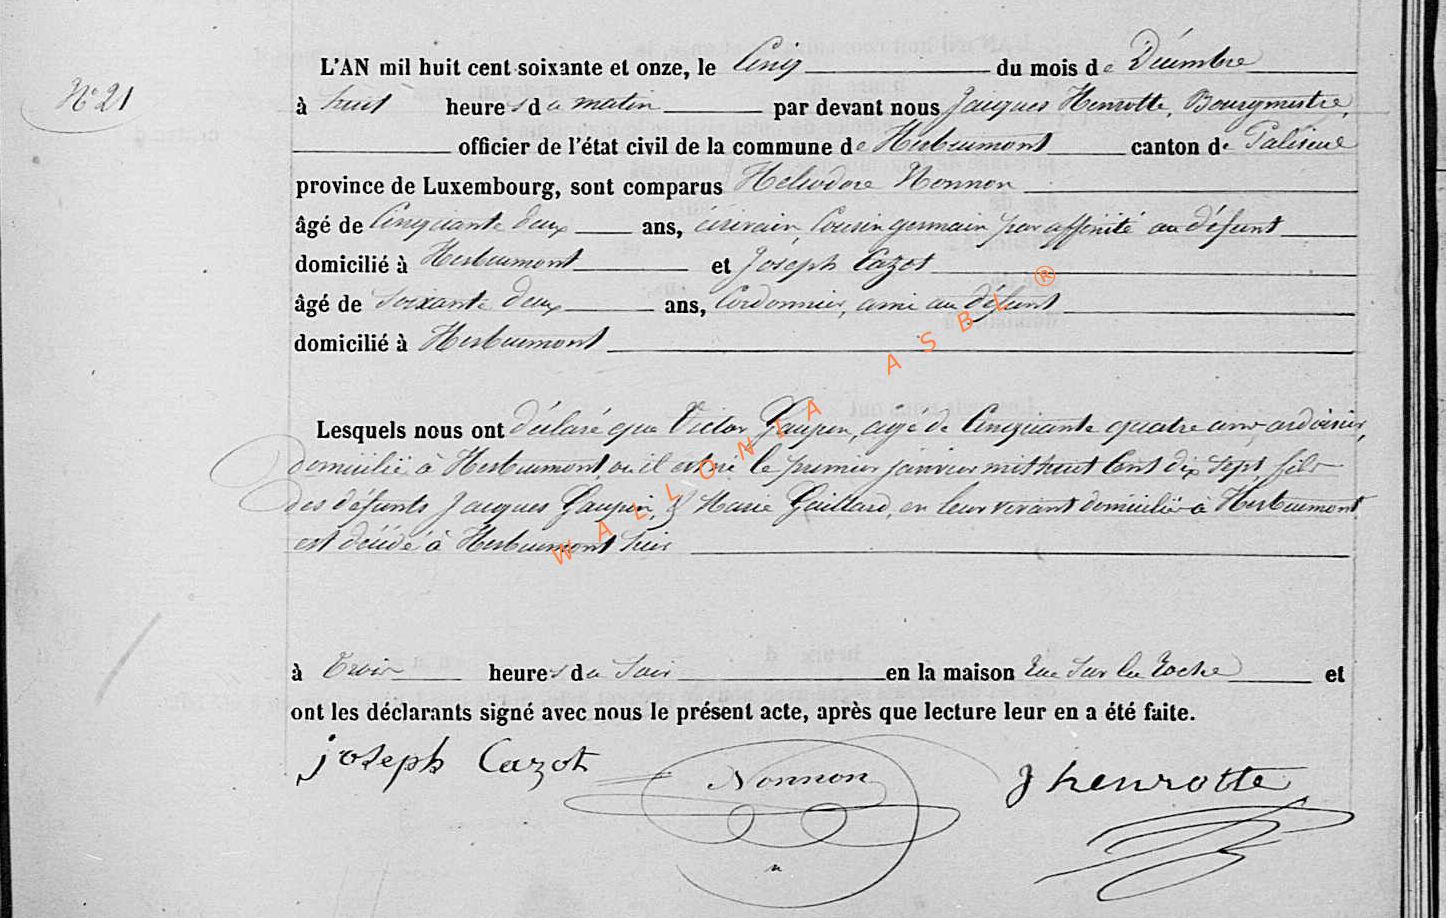 N° 21
L'AN mil huit cent soixante et onze, le Cinq du mois de Décembre
à huit heures du matin par devant nous Jacques Henrotte, Bourgmestre,
officier de l'état civil de la commune de Herbeumont canton de Paliseul
province de Luxembourg, sont comparus Heliodore Nonnon
âgé de Cinquante deux ans, écrivain, Cousin germain par affinité au défunt
domicilié à Herbeumont et Joseph Cazot
âgé de Soixante deux ans, Cordonnier, ami au défunt
domicilié à Herbeumont
Lesquels nous ont déclaré que Victor Gaupin, agé de Cinquante quatre ans ardoisier,
domicilié à Herbeumont, où il est né le premier janvier mil huit Cent dix sept, fils
des défunts Jacques Gaupin, & Marie Gaillard, en leur vivant domiciliés à Herbeumont
est décédé à Herbeumont hier
à trois heures du Soir en la maison Rue Sur la Roche et
ont les déclarants signé avec nous le présent acte, après que lecture leur en a été faite.
joseph Cazot Nonnon J henrotte
WALLONIA ASBL ®